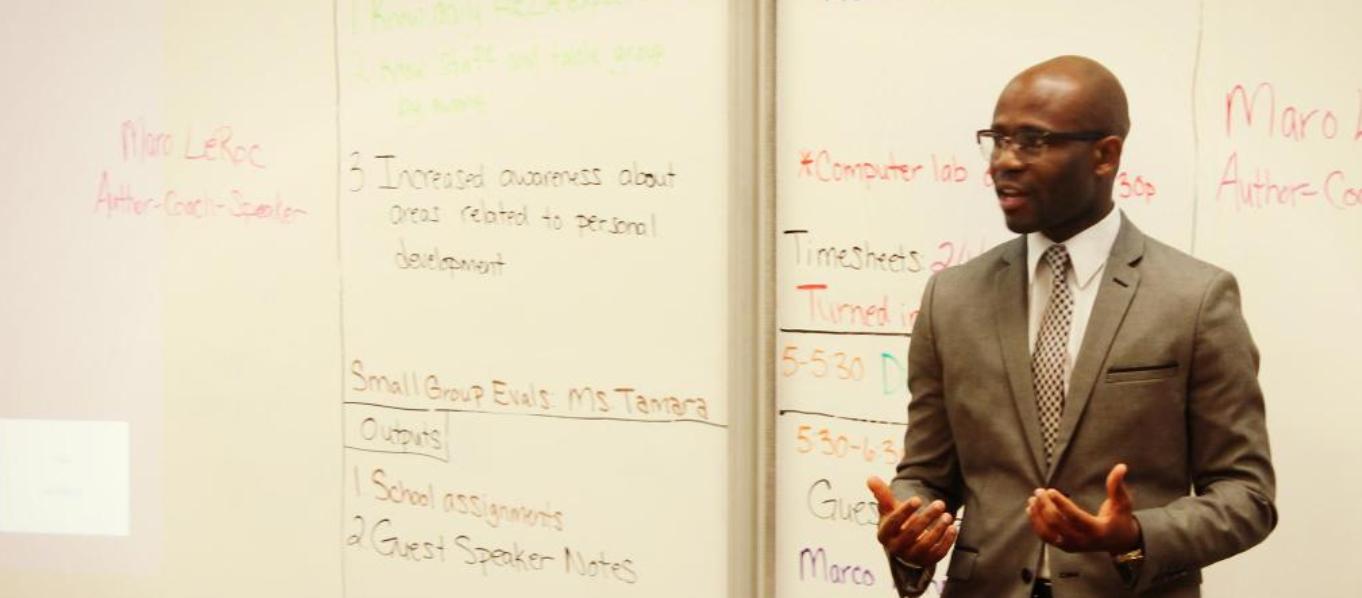 Maro LeRoc
Author-Coach-Speaker
2 Know Staff and table group
by name
3 Increased awareness about
areas related to personal
development
Small Group Evals: Ms. Tamara
Outputs
1 School assignments
2 Guest Speaker Notes
*Computer lab
30p
Timesheets
Turned in
5-5:30
5:30-6:3
Gues
Marco
Maro
Author-Co